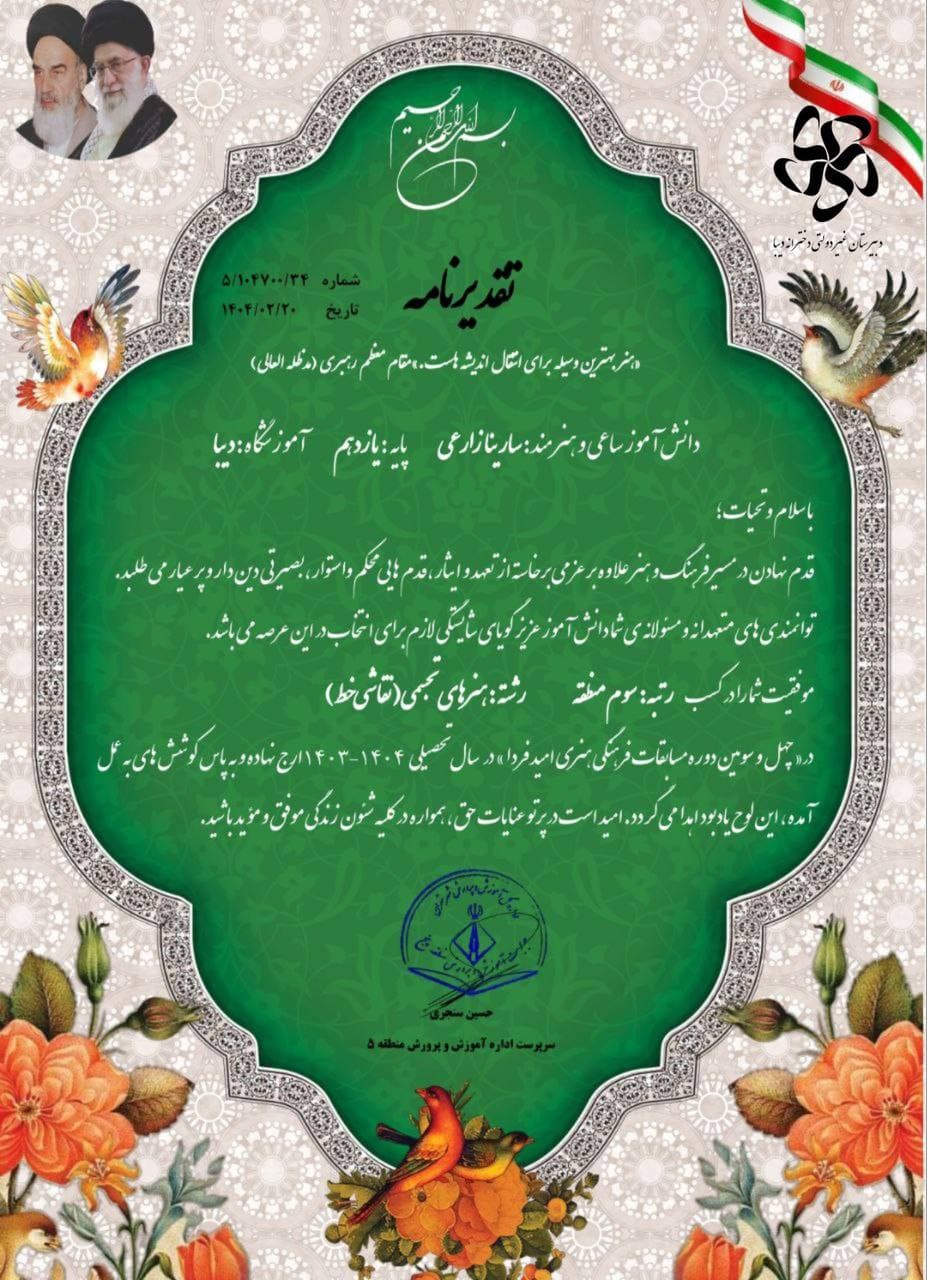 بسم الله الرحمن الرحیم
دبیرستان غیردولتی دخترانه دیبا
تقدیرنامه
شماره ۵/۱۰۴۷۰۰/۳۴
تاریخ ۱۴۰۴/۰۲/۲۰
«هنر بهترین وسیله برای انتقال اندیشه هاست.» مقام معظم رهبری (مدظله العالی)
دانش آموز ساعی و هنرمند: سارینا زارعی پایه: یازدهم آموزشگاه: دیبا
باسلام و تحیات؛
قدم نهادن در مسیر فرهنگ و هنر علاوه بر عزمی برخاسته از تعهد و ایثار، قدم هایی محکم و استوار، بصیرتی دین دار و پر عیار می طلبد.
توانمندی های متعهدانه و مسئولانه ی شما دانش آموز عزیز گویای شایستگی لازم برای انتخاب در این عرصه می باشد.
موفقیت شما را در کسب رتبه: سوم منطقه رشته: هنرهای تجسمی (نقاشی خط)
در «چهل و سومین دوره مسابقات فرهنگی هنری امید فردا» در سال تحصیلی ۱۴۰۴-۱۴۰۳ ارج نهاده و به پاس کوشش های به عمل
آمده، این لوح یادبود اهدا می گردد. امید است در پرتو عنایات حق، همواره در کلیه شئون زندگی موفق و مؤید باشید.
حسین سنجری
سرپرست اداره آموزش و پرورش منطقه ۵